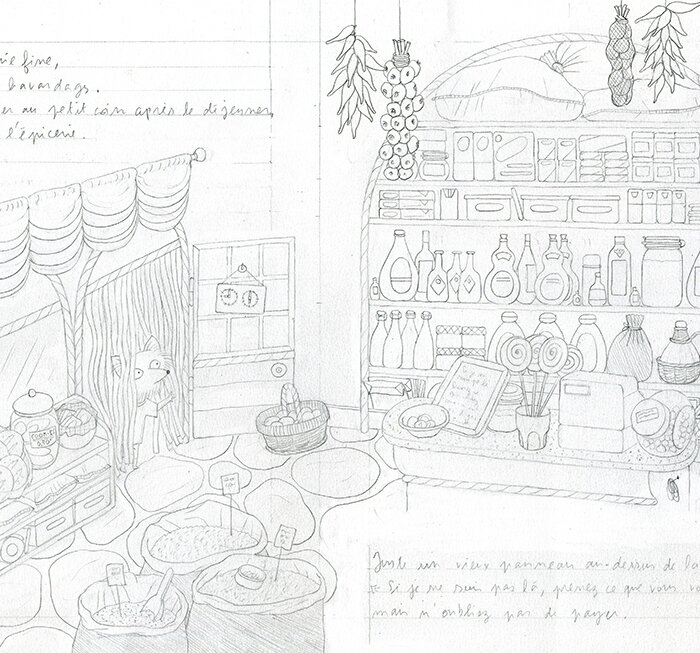 ie fine,
bavardages.
er au petit coin après le déjeuner,
l'épicerie.
COOKIES
Juste un vieux panneau au-dessus de la
Si je ne suis pas là, prenez ce que vous vo
mais n'oubliez pas de payer.